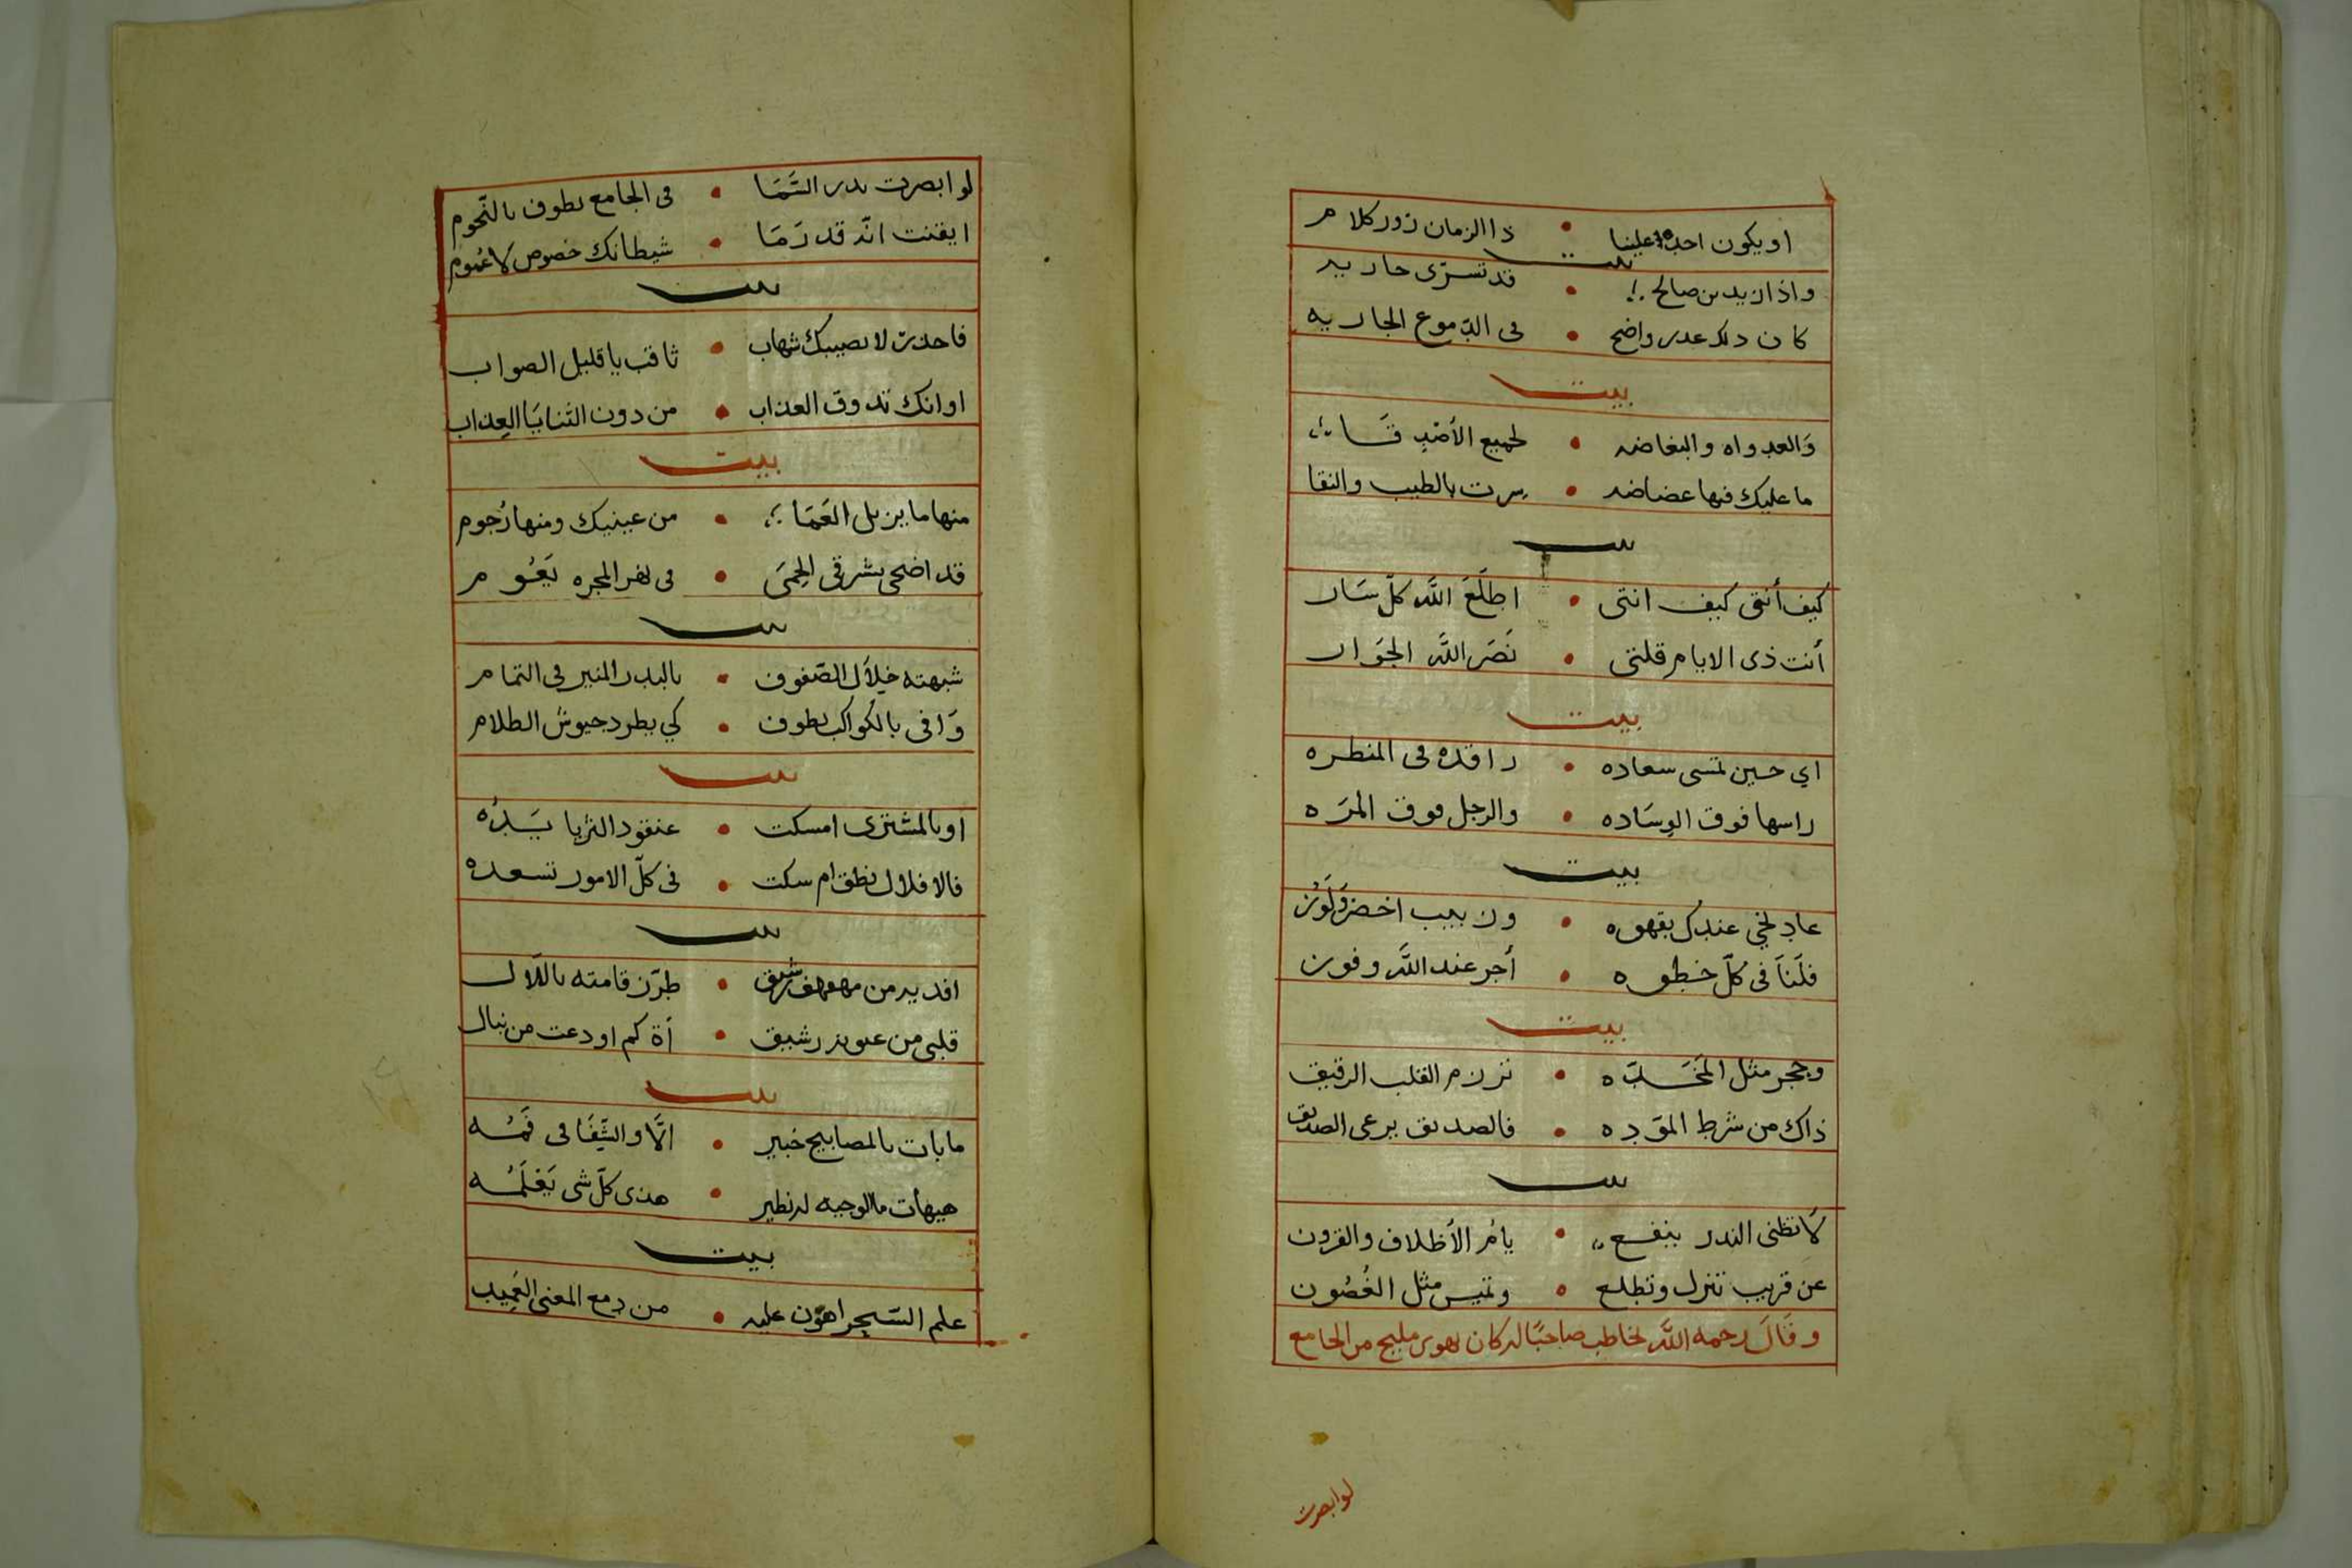 او يكون احد علينا • ذا الزمان زور كلام
بيت
واذا زيد بن صالح • قد تسرى جاريه
كان ذلك عذر واضح • فى الدّموع الجاريه
بيت
وَالعدواه والبغاضه • لجميع الأصْدِقَا
ما عليك فيها غضاضه • سرت بالطيب والنقا
بيت
كيف أنتى كيف انتى • اطلَعَ اللَّه كلّ سَار
أنت ذى الايام قلتى • نَصَر اللَّه الجوَار
بيت
اي حين تمسى سعاده • راقده فى المنظره
راسها فوق الوِسَاده • والرجل فوق المَرَه
بيت
عادِ لخي عندك بقهوه • وزبيب اخضر وَلَوْز
فلَنَا فى كُلّ خطوه • أجر عند اللَّه وفوز
بيت
وحجر مثل المَخَدّه • تزرم القلب الرقيق
ذاك من شرط الموَدِه • فالصديق يرعى الصديق
بيت
لَا تظنى الندر ينفع • يامْ الأَظلاف والقرون
عن قريب تنزل وتطلع • وتميس مثل الغُصُون
وقَالَ رحمه اللَّه يخاطب صاحبًا له كان يهوى مليح من الجامع
لو ابصرت
لو ابصرت بدر السَّمَا • فى الجامع يطوف بالنّجوم
ايقنت انّه قد رَمَا • شيطانك خصوص لَا عُموم
بيت
فاحذر لا يصيبك شهاب • ثاقب يا قليل الصواب
او انك تذوق العذاب • من دون الثنايَا العِذاب
بيت
منها ما يزيل العَمَا • من عينيك ومنها رُجوم
قد اضحى بشرقى الحِمَى • فى نهر المجره يَعُوم
بيت
شبهته خِلَال الصّفوف • بالبدر المنير فى التمام
وَافى بالكواكب يطوف • كي يطرد جيوش الظلام
بيت
او بالمشترى امسكت • عنقود الثريا يَدُه
فالافلاك نطق ام سكت • فى كلّ الامور تسعده
بيت
افديه من مهفهف شريق • طرّز قامته بالدّلال
قلبى من عيونه رشيق • آه كم اودعت من نبال
بيت
ما بات بالمصابيح خبير • الَّا والشِّفَا فى فَمُه
هيهات ما لوجهه نظير • هذى كلّ شى يَعْلَمُه
بيت
علم السّحر اهوَن عليه • من دِمع المعنى العَمِيد